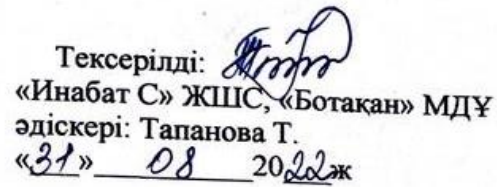 Тексерілді:
«Инабат С» ЖШС, «Ботақан» МДҰ
әдіскері: Тапанова Т.
«31» 08 2022ж